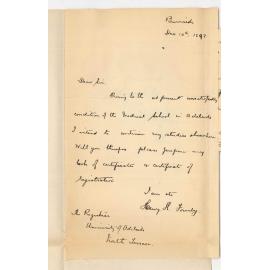 Burnside
Dec 10th 1897
Dear Sir
Owing to the at present unsatisfactory
condition of the Medical School in Adelaide
I intend to continue my studies elsewhere
Will you therefore please prepare my
certificates a certificate of
registration
I am etc
Henry R
The Registrar
University of Adelaide
North Terrace